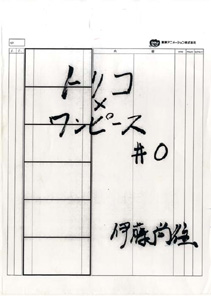 東映アニメーション株式会社
トリコ
×
ワンピース
#0
伊藤尚往